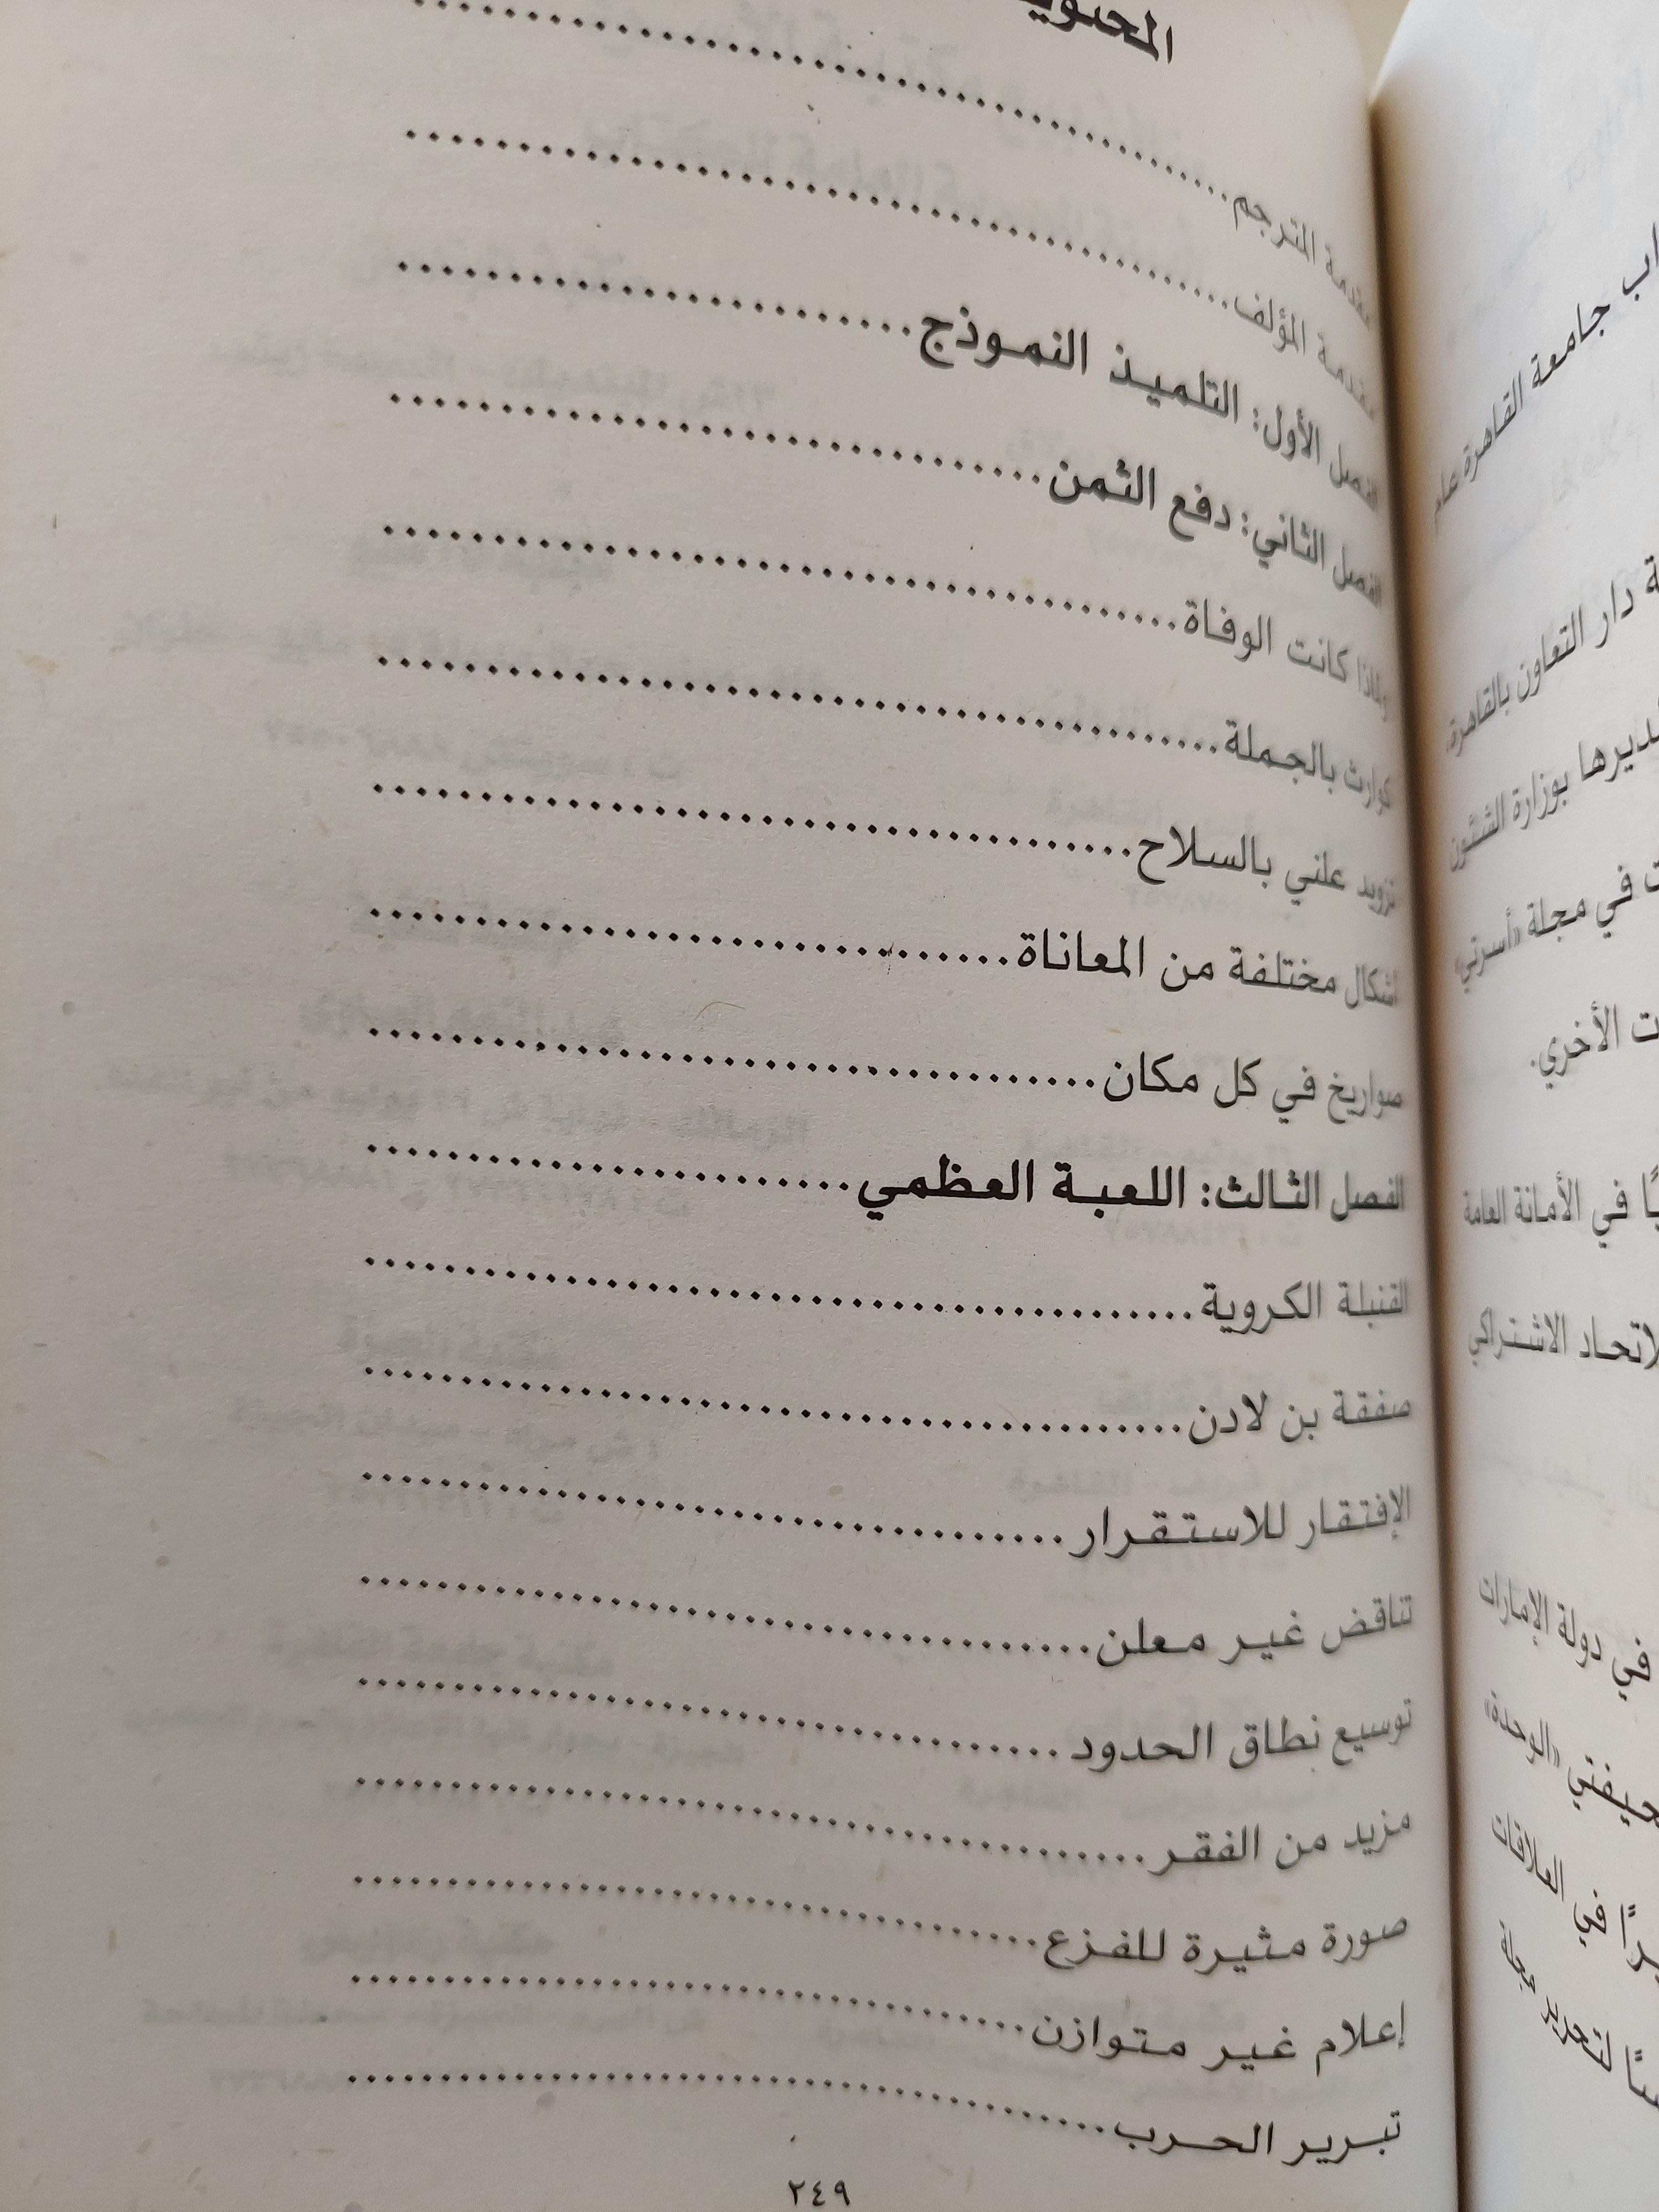 مقدمة المترجم
مقدمة المؤلف
الفصل الأول: التلميذ النموذج
الفصل الثاني: دفع الثمن
ولماذا كانت الوفاة
كوارث بالجملة
تزويد علني بالسلاح
أشكال مختلفة من المعاناة
صواريخ في كل مكان
الفصل الثالث: اللعبة العظمي
القنبلة الكروية
صفقة بن لادن
الإفتقار للاستقرار
تناقض غير معلن
توسيع نطاق الحدود
مزيد من الفقر
صورة مثيرة للفزع
إعلام غير متوازن
تبرير الحرب
٢٤٩
جامعة القاهرة عام
دار التعاون بالقاهرة
بوزارة الشئون
في مجلة «أسرتي»
الأخري.
في الأمانة العامة
الاشتراكي
في دولة الإمارات
«الوحدة»
في العلاقات
لتحرير مجلة